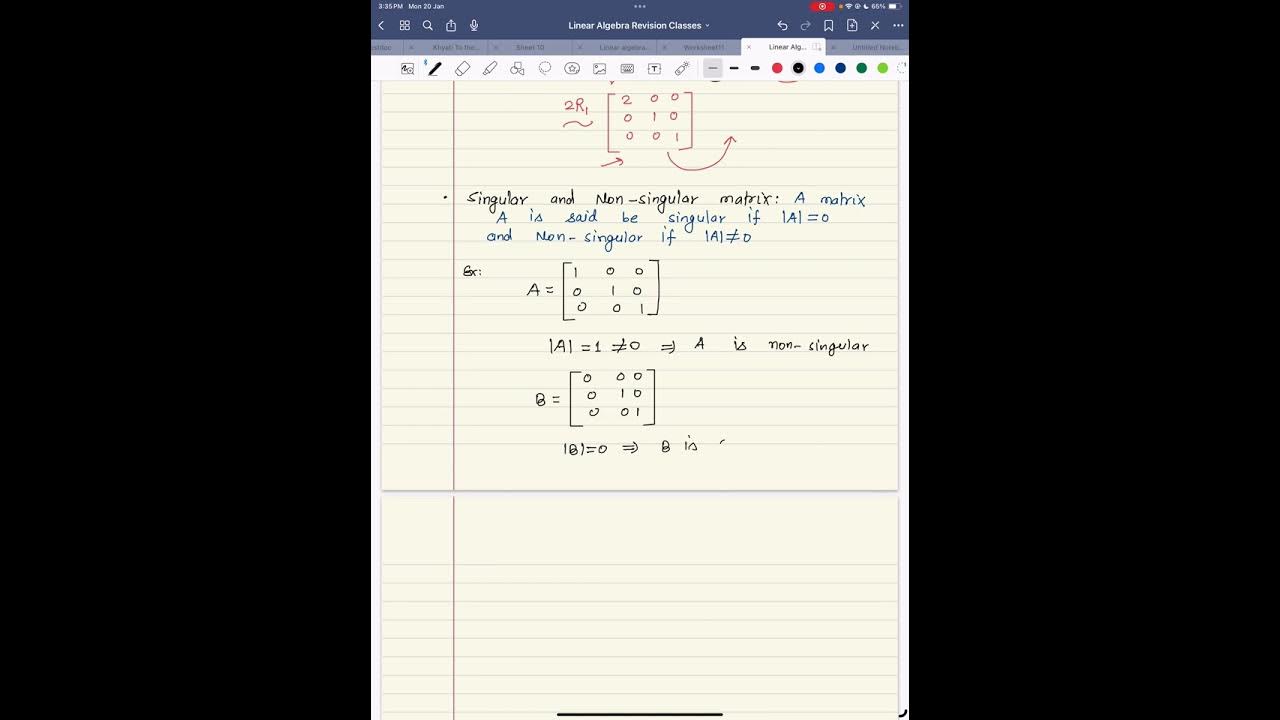 3:35 PM Mon 20 Jan
65%
Linear Algebra Revision Classes
Khyati To the...
Sheet 10
Linear algebra...
Worksheet11
Linear Alg...
Untitled Noteb...
2R₁ ~ [ 2 0 0
0 1 0
0 0 1 ]
• Singular and Non-singular matrix: A matrix
A is said be singular if |A|=0
and Non-singular if |A|≠0
Ex:
A = [ 1 0 0
0 1 0
0 0 1 ]
|A| = 1 ≠0 ⇒ A is non-singular
B = [ 0 0 0
0 1 0
0 0 1 ]
|B|=0 ⇒ B is